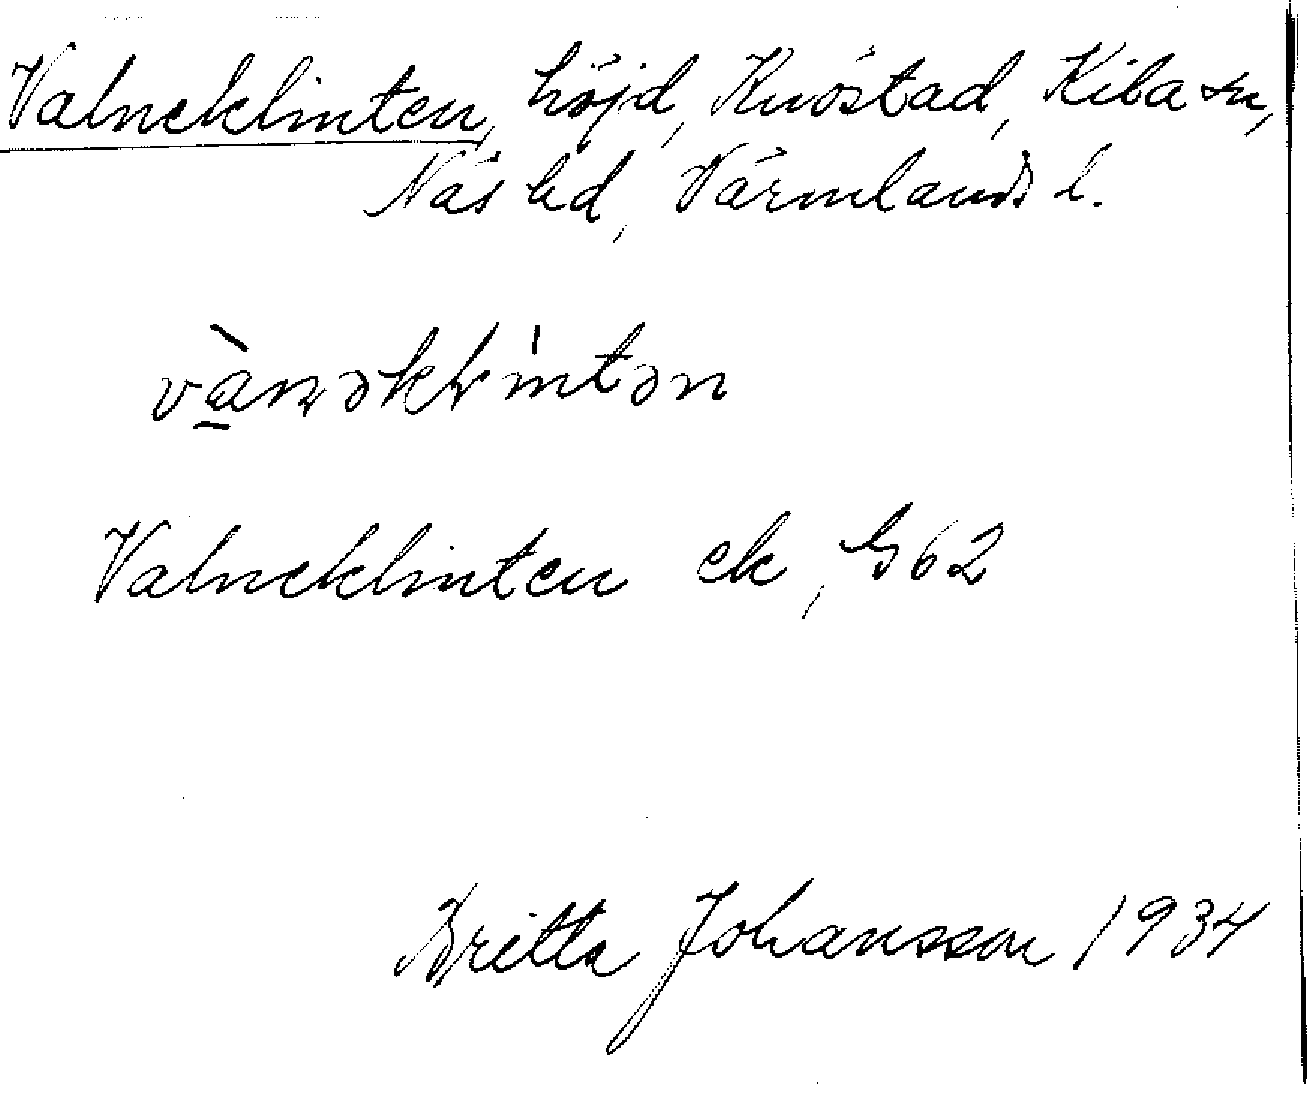 Valneklinten, höjd, Knöstad, Kila sn,
Näs hd, Värmlands l.
vànəklintən
Valneklinten ek, G62
Britta Johansson 1934